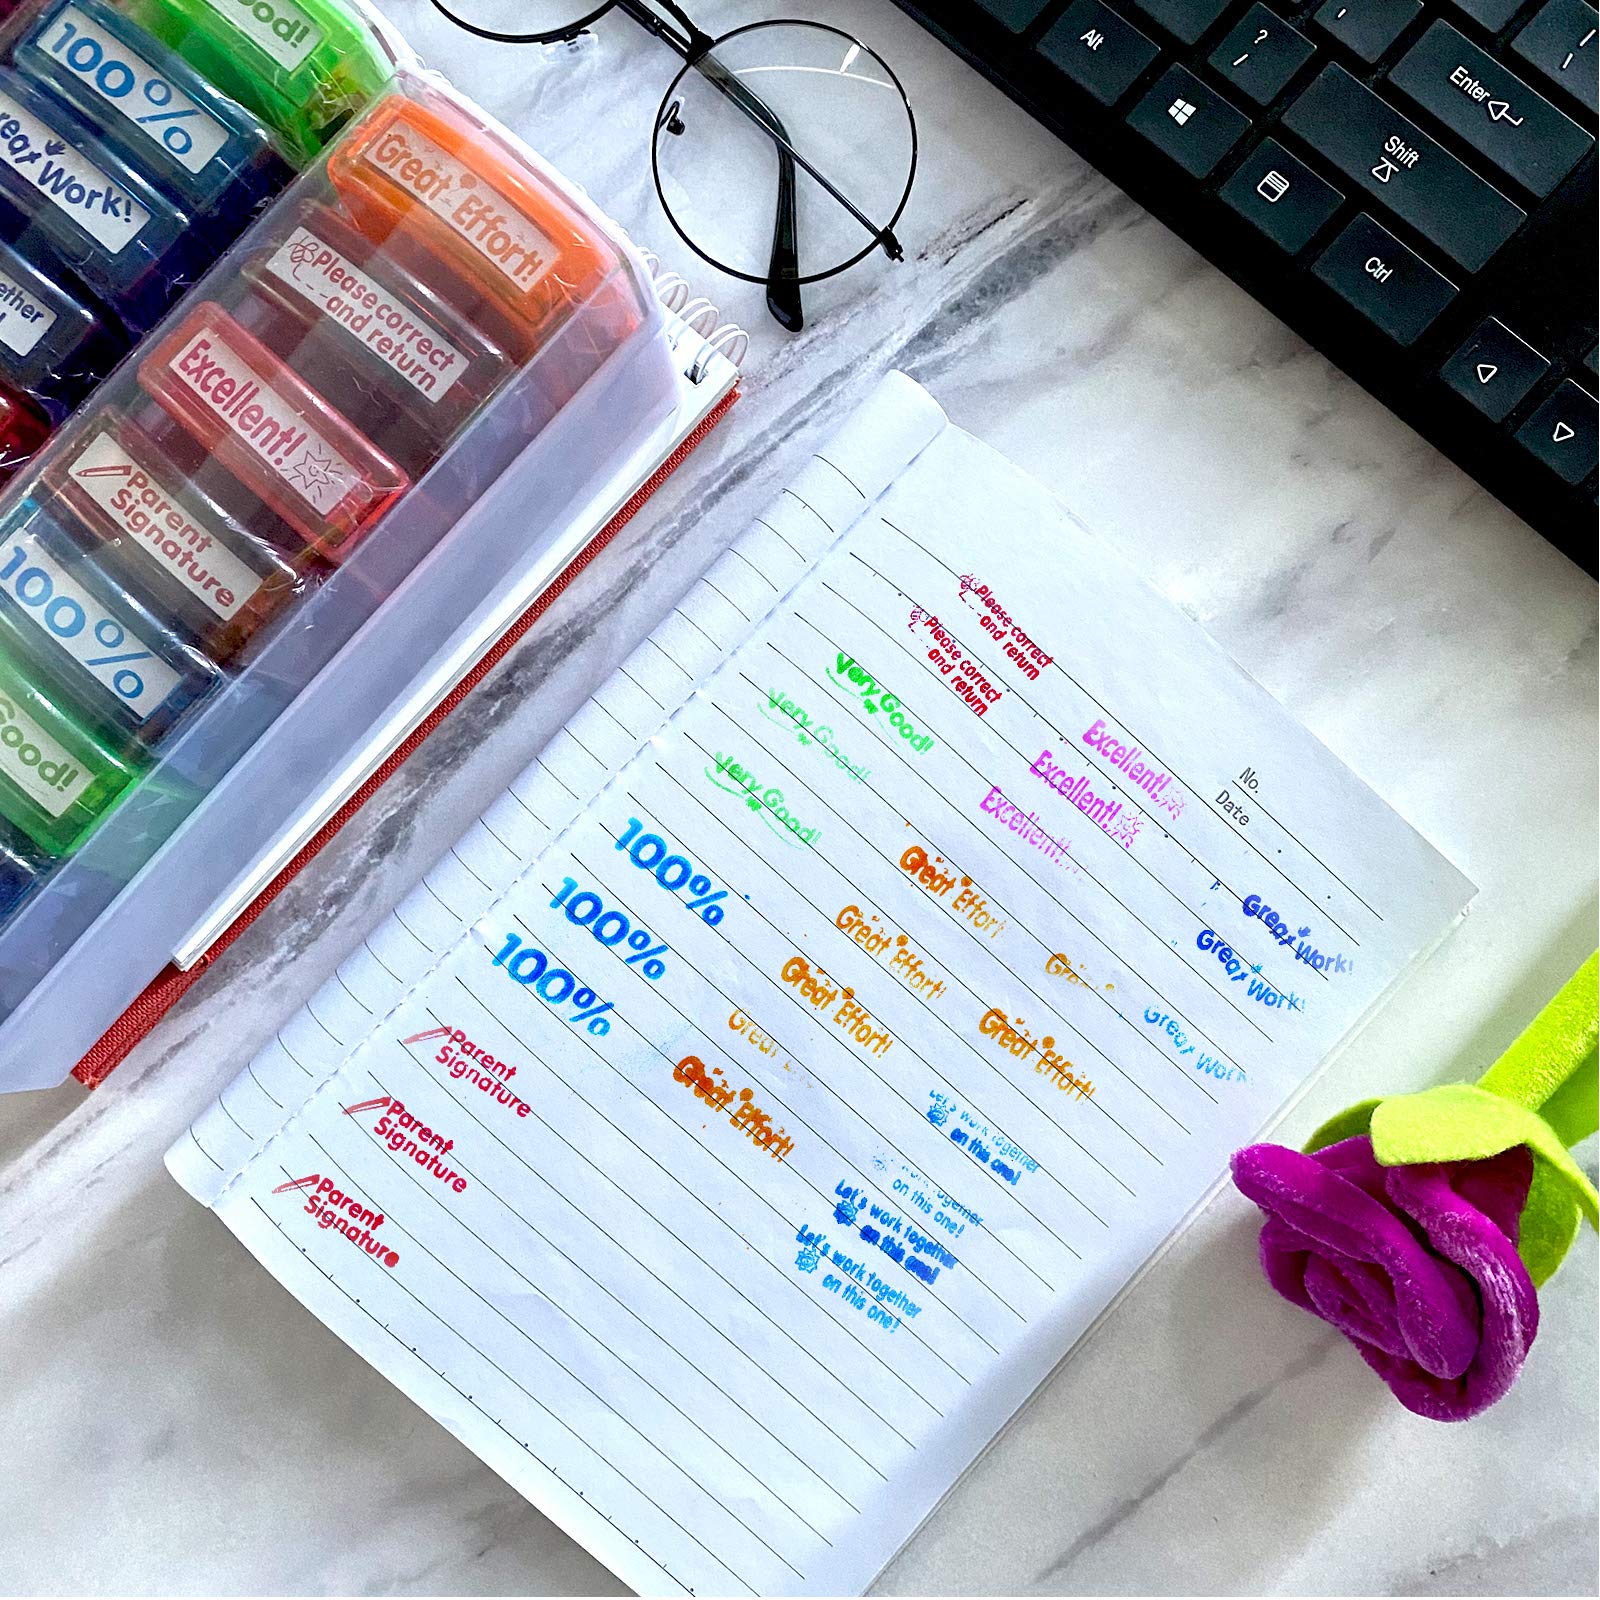 Good!
100%
Great Work!
Great Effort!
Please correct
and return
Excellent!
Parent
Signature
100%
Good!
Alt
?
/
Enter
Shift
Ctrl
Please correct
and return
Please correct
and return
Very Good!
Very Good!
Very Good!
Excellent!
Excellent!
Excellent!
No.
Date
100%
100%
100%
Great Effort!
Great Effort!
Great Effort!
Great
Great Effort!
Great Effort!
Great Work!
Great Work!
Great Work
Parent
Signature
Parent
Signature
Parent
Signature
Let's work together
on this one!
work together
on this one!
Let's work together
on this one!
Let's work together
on this one!